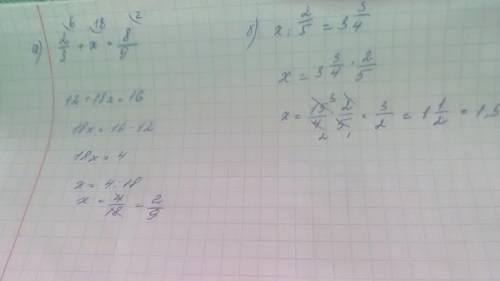 а) 2/3 (6 + x (18 = 8/9 (2
12 + 18x = 16
18x = 16 - 12
18x = 4
x = 4 : 18
x = 4/18 = 2/9
б) x : 2/5 = 3 3/4
x = 3 3/4 · 2/5
x = 15/4 · 2/5 = 3/2 = 1 1/2 = 1,5